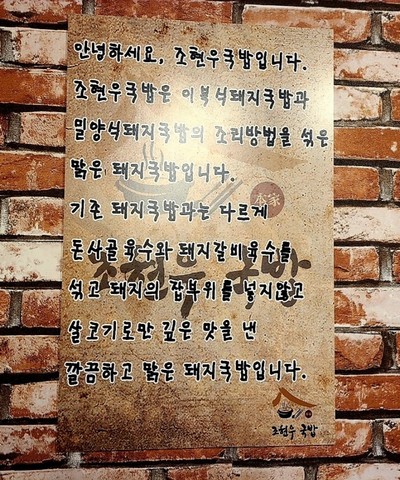 안녕하세요, 조현우국밥입니다.
조현우국밥은 이북식돼지국밥과
밀양식돼지국밥의 조리방법을 섞은
맑은 돼지국밥입니다.
本家
기존 돼지국밥과는 다르게
돈사골육수와 돼지갈비육수를
조현우 국밥
섞고 돼지의 잡부위를 넣지않고
살코기로만 깊은 맛을 낸
깔끔하고 맑은 돼지국밥입니다.
조현우 국밥